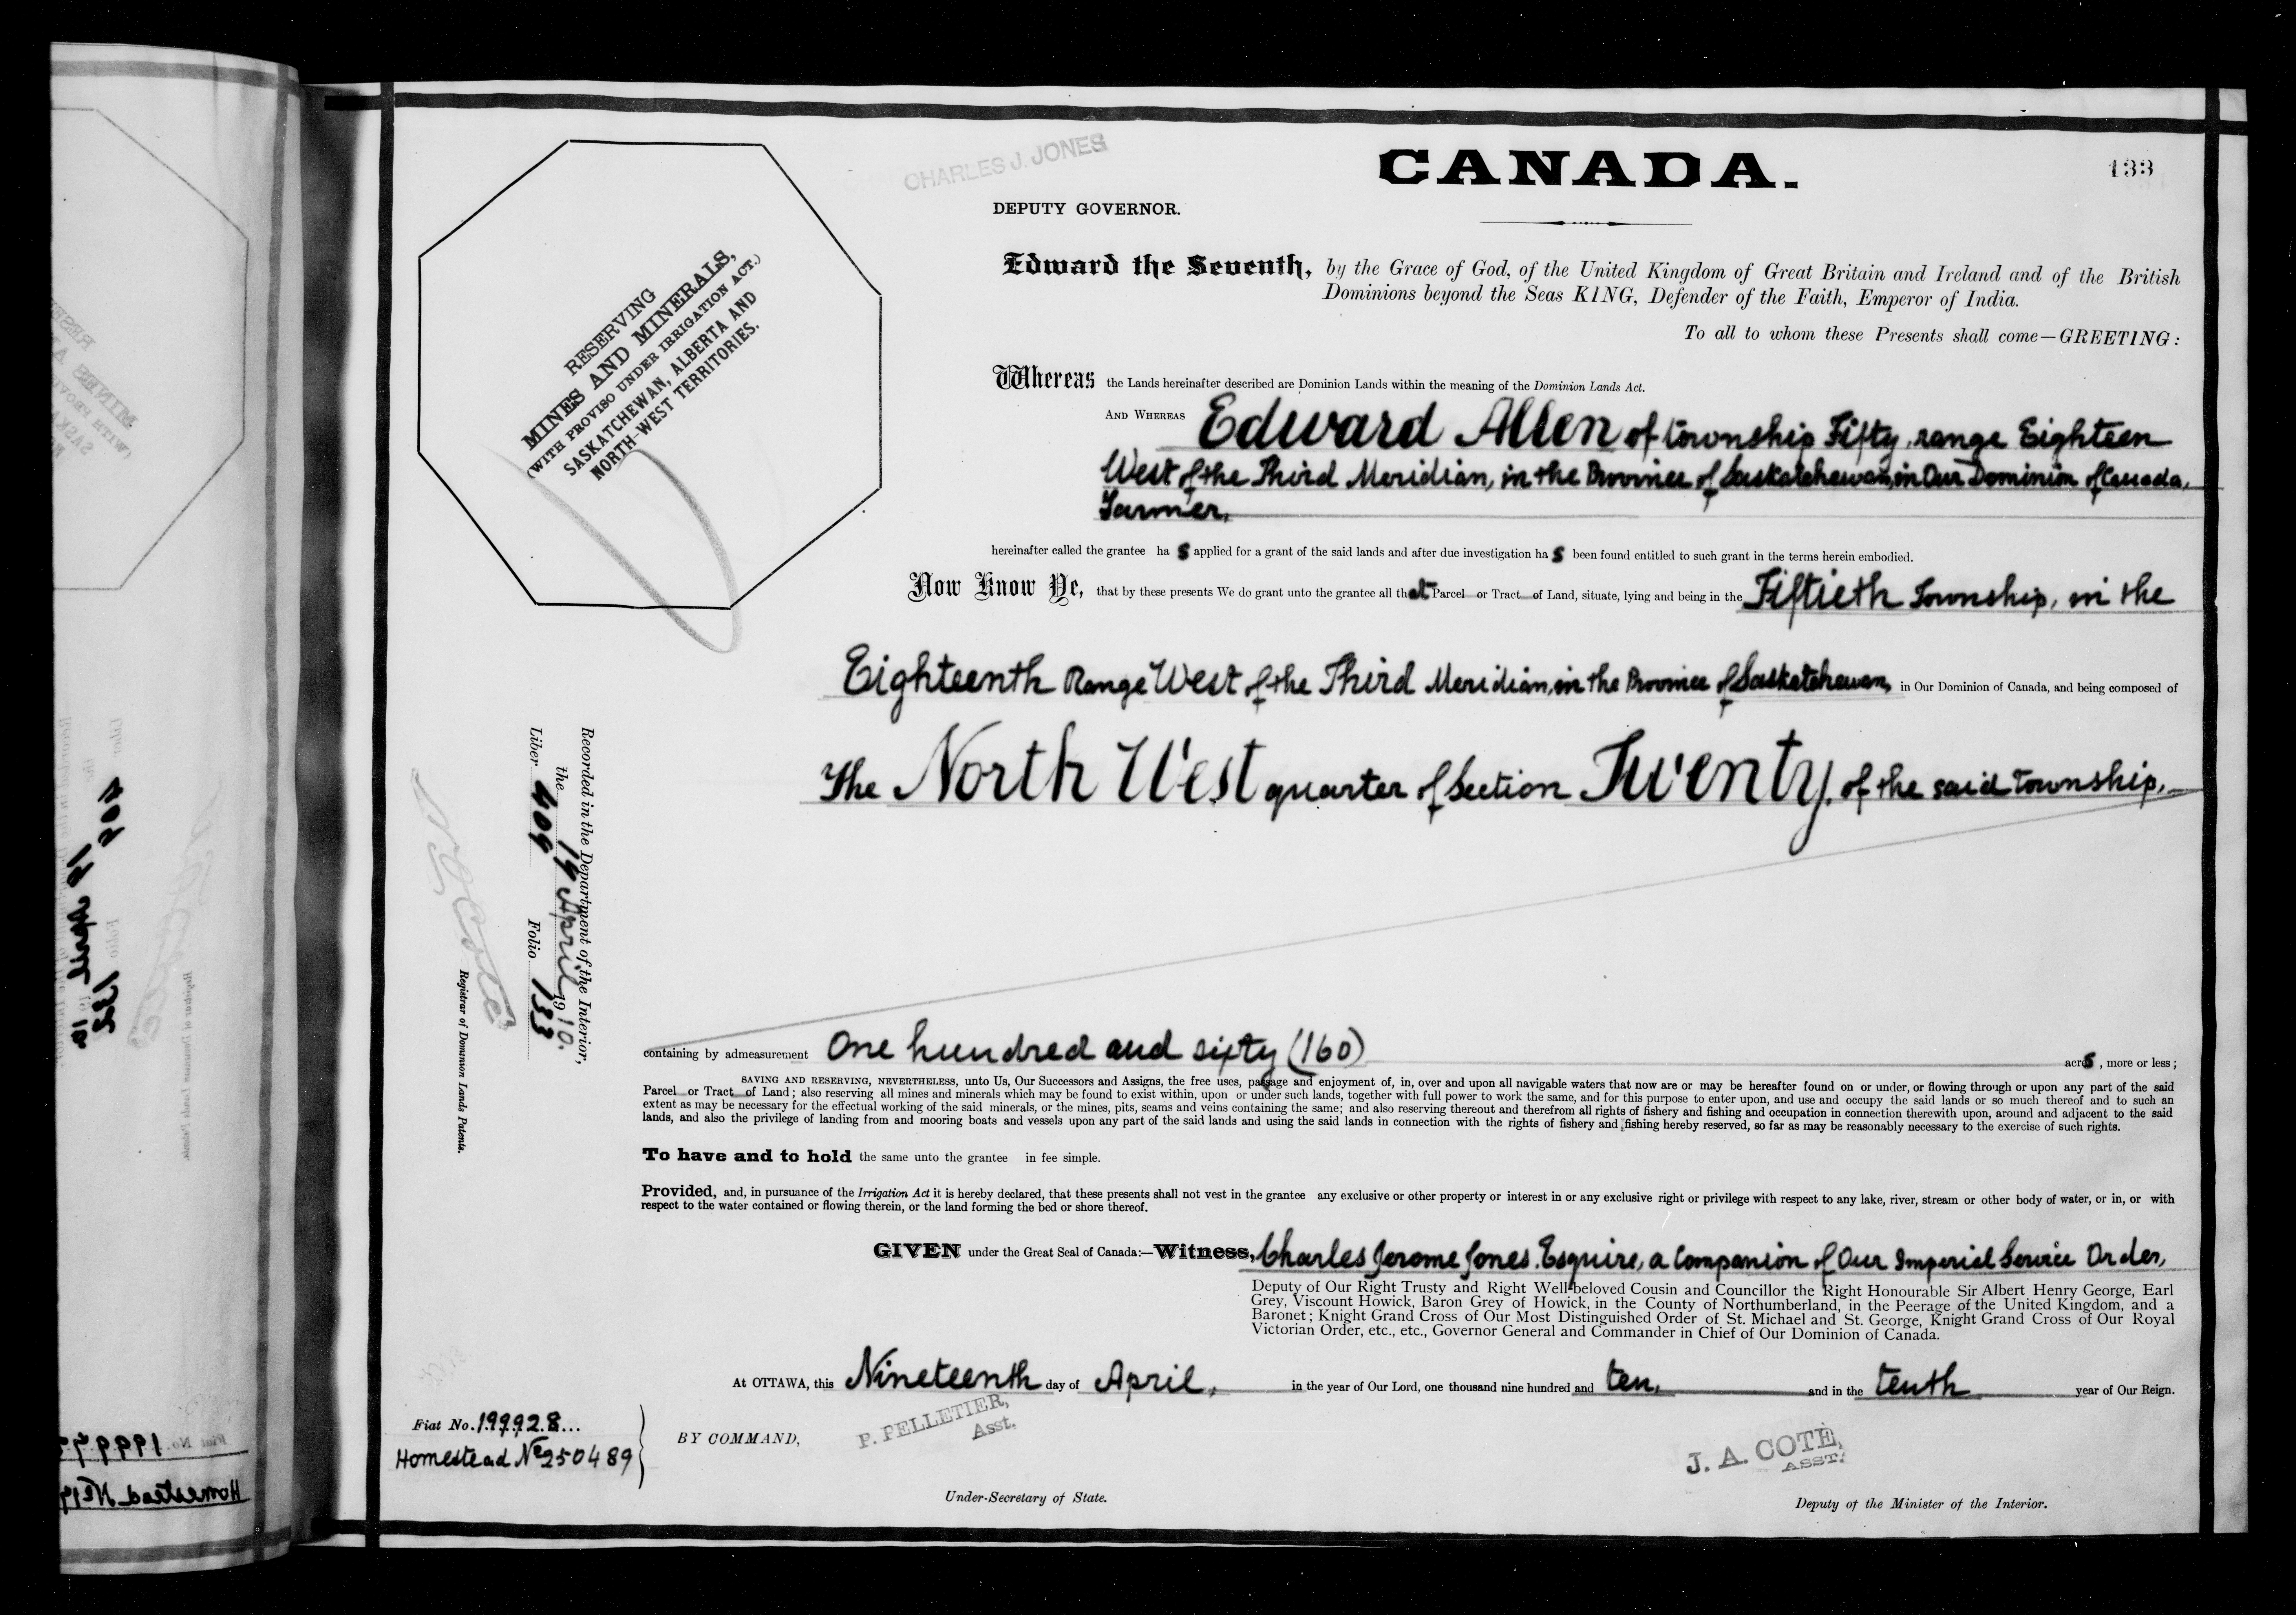 CHARLES J. JONES
CANADA.
133
DEPUTY GOVERNOR.
RESERVING
MINES AND MINERALS,
(WITH PROVISO UNDER IRRIGATION ACT.)
SASKATCHEWAN, ALBERTA AND
NORTH-WEST TERRITORIES.
Edward the Seventh, by the Grace of God, of the United Kingdom of Great Britain and Ireland and of the British
Dominions beyond the Seas KING, Defender of the Faith, Emperor of India.
To all to whom these Presents shall come—GREETING:
Whereas the Lands hereinafter described are Dominion Lands within the meaning of the Dominion Lands Act.
AND WHEREAS Edward Allen of township Fifty, range Eighteen
West of the Third Meridian, in the Province of Saskatchewan, in Our Dominion of Canada,
Farmer,
hereinafter called the grantee ha s applied for a grant of the said lands and after due investigation ha s been found entitled to such grant in the terms herein embodied.
Now Know Ye, that by these presents We do grant unto the grantee all that Parcel or Tract of Land, situate, lying and being in the Fiftieth Township, in the
Eighteenth Range West of the Third Meridian, in the Province of Saskatchewan, in Our Dominion of Canada, and being composed of
The North West quarter of Section Twenty, of the said township,
Recorded in the Department of the Interior,
the 19 April 1910.
Liber 409 Folio 133
N. O. Coté
Registrar of Dominion Lands Patents.
containing by admeasurement One hundred and sixty (160) acres, more or less;
SAVING AND RESERVING, NEVERTHELESS, unto Us, Our Successors and Assigns, the free uses, passage and enjoyment of, in, over and upon all navigable waters that now are or may be hereafter found on or under, or flowing through or upon any part of the said
Parcel or Tract of Land; also reserving all mines and minerals which may be found to exist within, upon or under such lands, together with full power to work the same, and for this purpose to enter upon, and use and occupy the said lands or so much thereof and to such an
extent as may be necessary for the effectual working of the said minerals, or the mines, pits, seams and veins containing the same; and also reserving thereout and therefrom all rights of fishery and fishing and occupation in connection therewith upon, around and adjacent to the said
lands, and also the privilege of landing from and mooring boats and vessels upon any part of the said lands and using the said lands in connection with the rights of fishery and fishing hereby reserved, so far as may be reasonably necessary to the exercise of such rights.
To have and to hold the same unto the grantee in fee simple.
Provided, and, in pursuance of the Irrigation Act it is hereby declared, that these presents shall not vest in the grantee any exclusive or other property or interest in or any exclusive right or privilege with respect to any lake, river, stream or other body of water, or in, or with
respect to the water contained or flowing therein, or the land forming the bed or shore thereof.
GIVEN under the Great Seal of Canada:—Witness, Charles Jerome Jones, Esquire, a Companion of Our Imperial Service Order,
Deputy of Our Right Trusty and Right Well-beloved Cousin and Councillor the Right Honourable Sir Albert Henry George, Earl
Grey, Viscount Howick, Baron Grey of Howick, in the County of Northumberland, in the Peerage of the United Kingdom, and a
Baronet; Knight Grand Cross of Our Most Distinguished Order of St. Michael and St. George, Knight Grand Cross of Our Royal
Victorian Order, etc., etc., Governor General and Commander in Chief of Our Dominion of Canada.
At OTTAWA, this Nineteenth day of April, in the year of Our Lord, one thousand nine hundred and ten, and in the tenth year of Our Reign.
Fiat No. 199928...
Homestead No 250489
BY COMMAND,
P. PELLETIER,
Asst.
J. A. COTE,
ASST.
Under-Secretary of State.
Deputy of the Minister of the Interior.